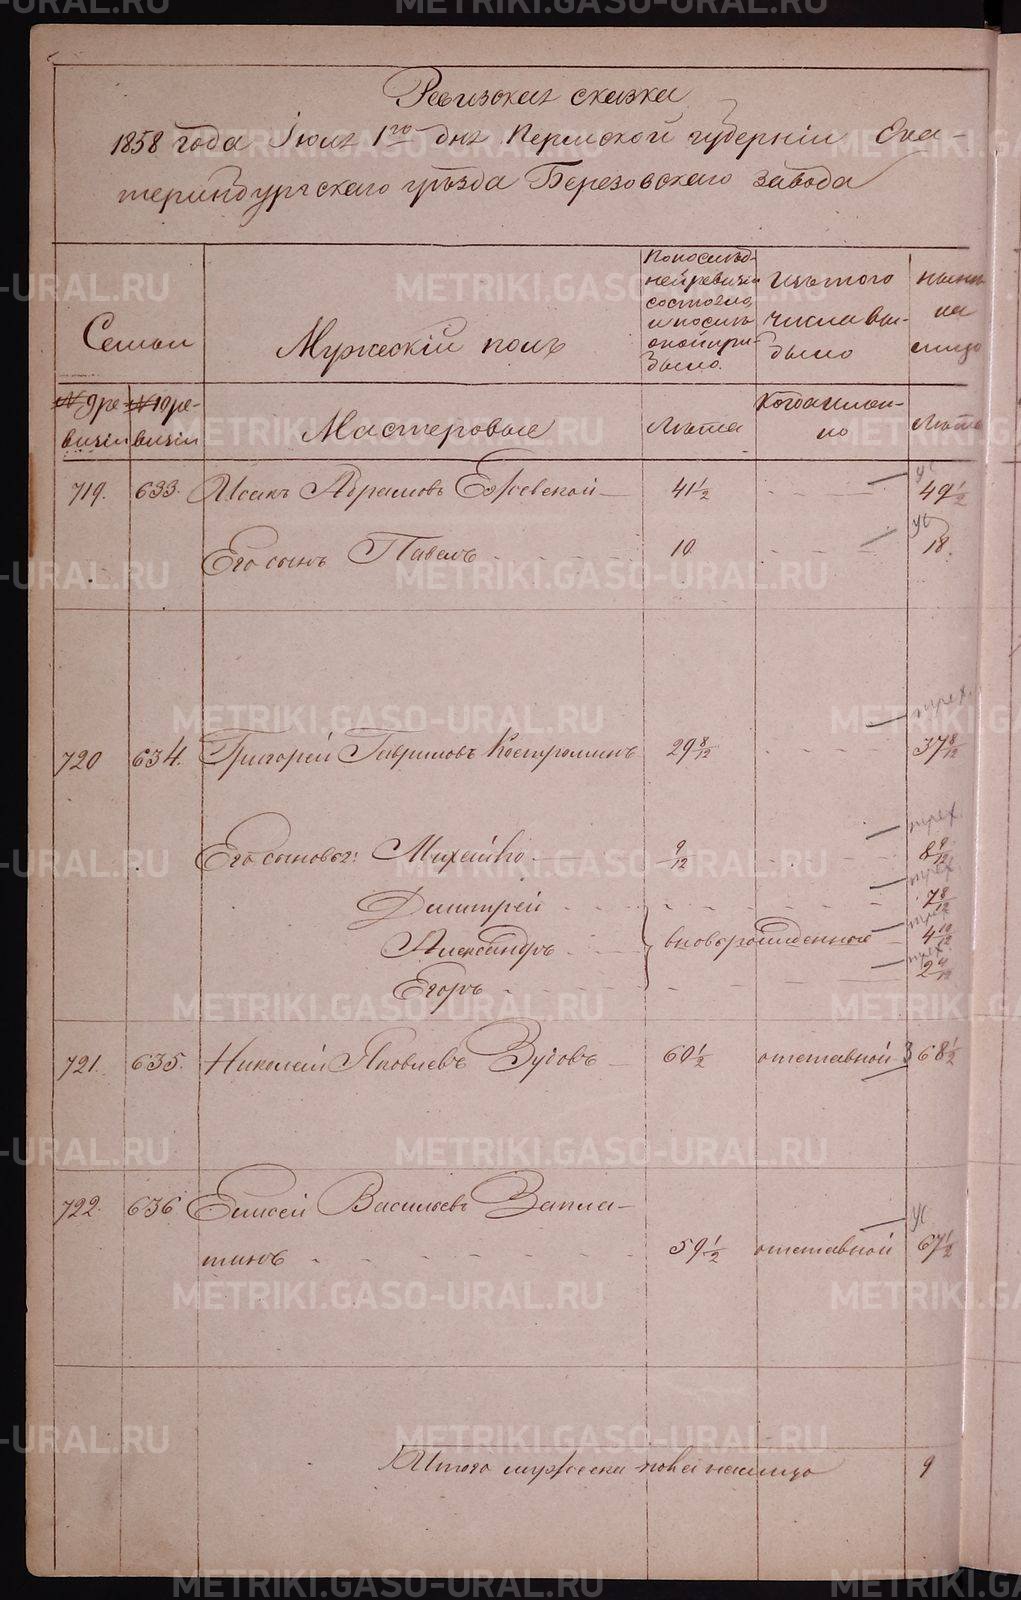 Ревизская сказка
1858 года Июля 1го дня Пермской губернии Ека-
теринбургскаго уезда Березовскаго завода
Семьи
Мужеский полъ
По послед-
ней ревизии
состояло,
и после
оной при-
было.
Изъ того
числа вы-
было
ныне
на
лицо
№ 9 ре-
визии
№ 10 ре-
визии
Мастеровые
Лета
Когда имян-
но
Лета
719. 633. Исакъ Абрамовъ Ежевской 41 1/2 49 1/2
Его сынъ Павелъ 10 18.
720 634. Григорей Гавриловъ Костроминъ 29 8/12 37 8/12
Его сыновья: Михайло 9/12 8 9/12
Димитрей 7 8/12
Александръ вновь рожденное 4 10/12
Егоръ
721. 635. Николай Яковлевъ Зубовъ 60 1/2 отставной 3 68 1/2
722. 636 Елисей Васильевъ Запла-
тинъ 59 1/2 отставной 67 1/2
Итого мужеска пола налицо 9
METRIKI.GASO-URAL.RU